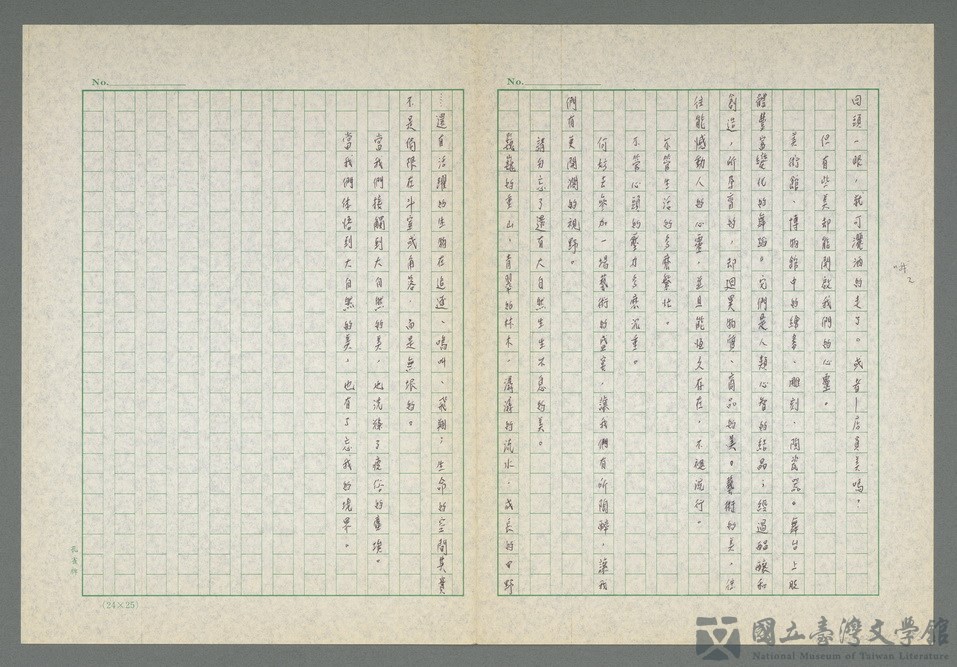 No.
No.
回頭一眼，就可瀟洒的走了。或者卜居真美嗎？
但有些美却能開啟我們的心靈。
美術館、博物館中的繪畫、雕刻、陶瓷器。舞台上肢
體豐富變化的舞蹈。它們是人類心智的結晶；經過醞釀和
創造，所孕育的，却迥異物質、商品的美。藝術的美，往
往能憾動人的心靈，並且能恆久存在，不褪流行。
不管生活的多麼繁忙。
不管心頭的壓力多麼沉重。
何妨去參加一場藝術的盛宴，讓我們有所陶醉，讓我
們有更開濶的視野。
請勿忘了還有大自然生生不息的美。
巍巍的重山，青翠的林木，潺潺的流水，成長的田野
……還有活躍的生物在追逐、鳴叫、飛翔；生命的空間其實
不是侷限在斗室或角落，而是無垠的。
當我們接觸到大自然的美，也洗滌了疲倦的塵埃。
當我們体悟到大自然的美，也有了忘我的境界。
(24×25)
國立臺灣文學館
National Museum of Taiwan Literature